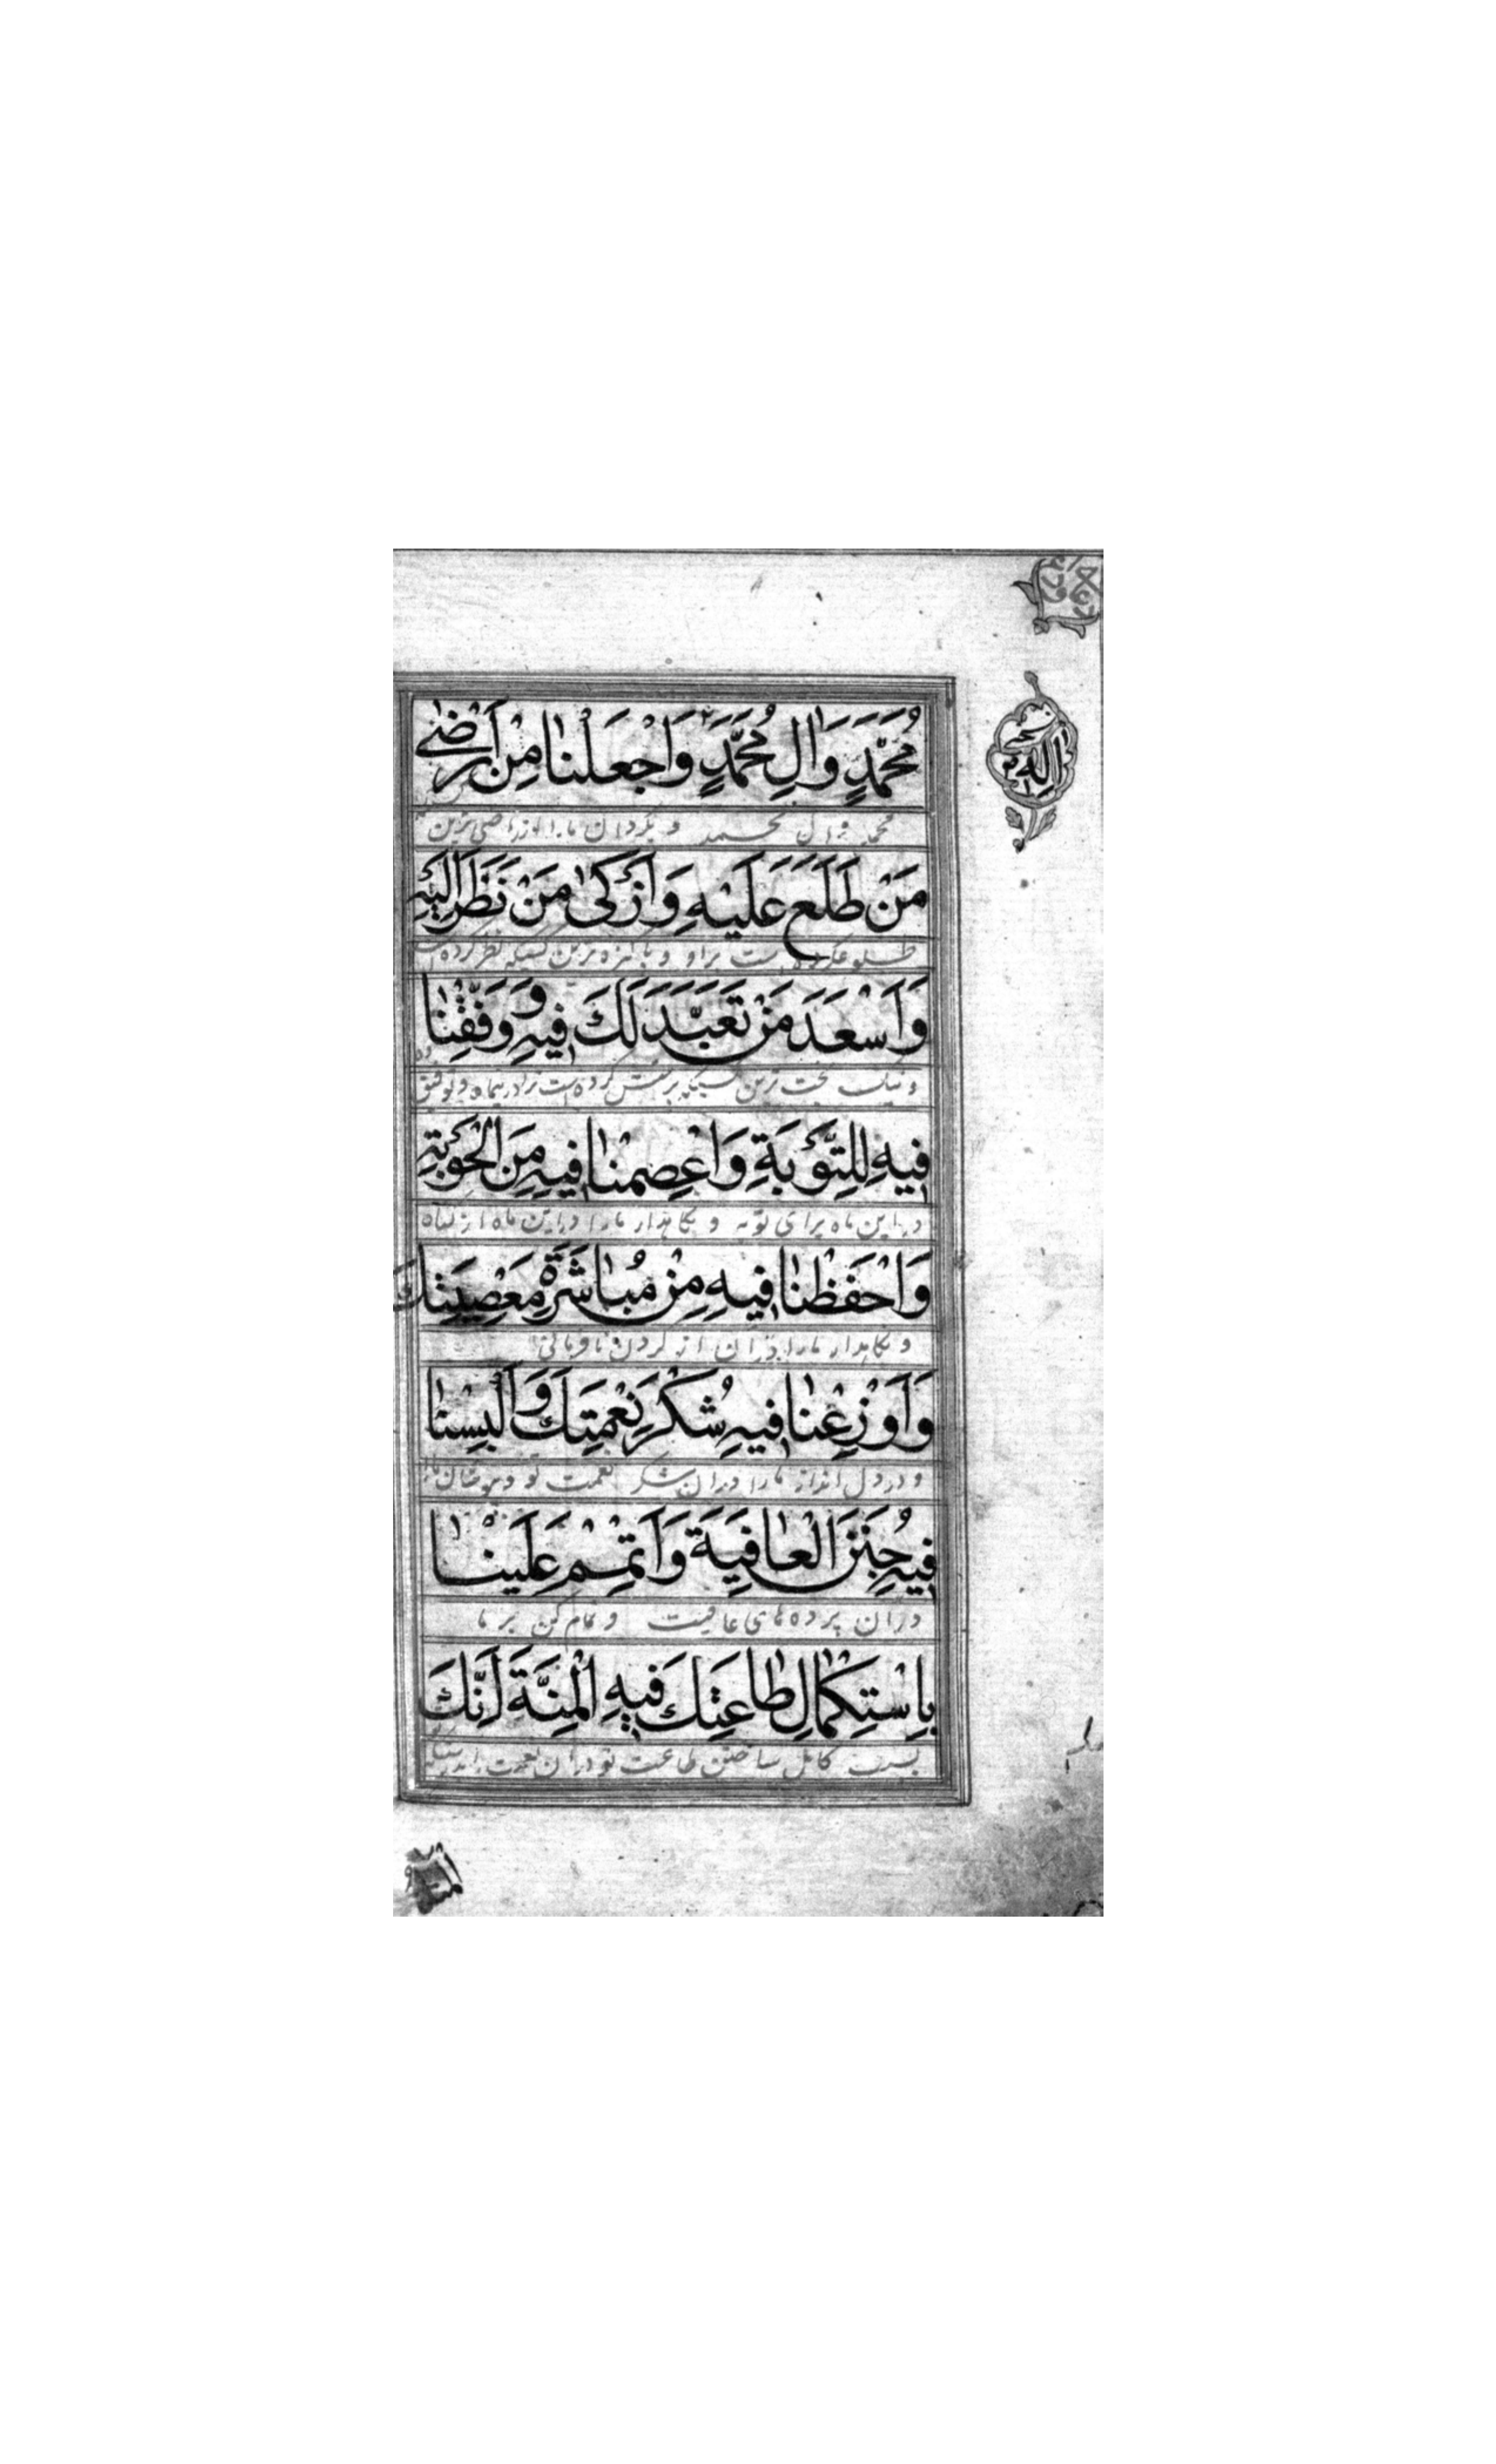 مُحَمَّدٍ وَاٰلِ مُحَمَّدٍ وَاجْعَلْنٰا مِنْ اَرْضٰى
محمد وال محمد و بگردان ما را از راضی ترین
مَنْ طَلَعَ عَلَيْهِ وَاَزْكىٰ مَنْ نَظَرَ اِلَيْهِ
طلوع کرده است براو و پاکیزه ترین کسیکه نظر کرده
وَاَسْعَدَ مَنْ تَعَبَّدَ لَكَ فيهِ وَوَفِّقْنٰا
و نیک بخت ترین کسیکه پرستش کرده است ترا درینماه و توفیق ده
فيهِ لِلتَّوْبَةِ وَاعْصِمْنٰا فيهِ مِنَ الْحَوْبَةِ
در این ماه برای توبه و نگاهدار ما را در این ماه از گناه
وَاحْفَظْنٰا فيهِ مِنْ مُبٰاشَرَةِ مَعْصِيَتِكَ
و نگاهدار ما را در آن از کردن نافرمانی
وَاَوْزِعْنٰا فيهِ شُكْرَ نِعْمَتِكَ وَاَلْبِسْنٰا
و در دل انداز ما را در آن شکر نعمت تو و بپوشان ما را
فيهِ جُنَنَ الْعٰافِيَةِ وَاَتْمِمْ عَلَيْنٰا
در آن پرده های عافیت و تمام کن بر ما
بِاسْتِكْمٰالِ طٰاعَتِكَ فيهِ الْمِنَّةَ اِنَّكَ
کامل ساختن طاعت تو در آن نعمت را بدرستیکه